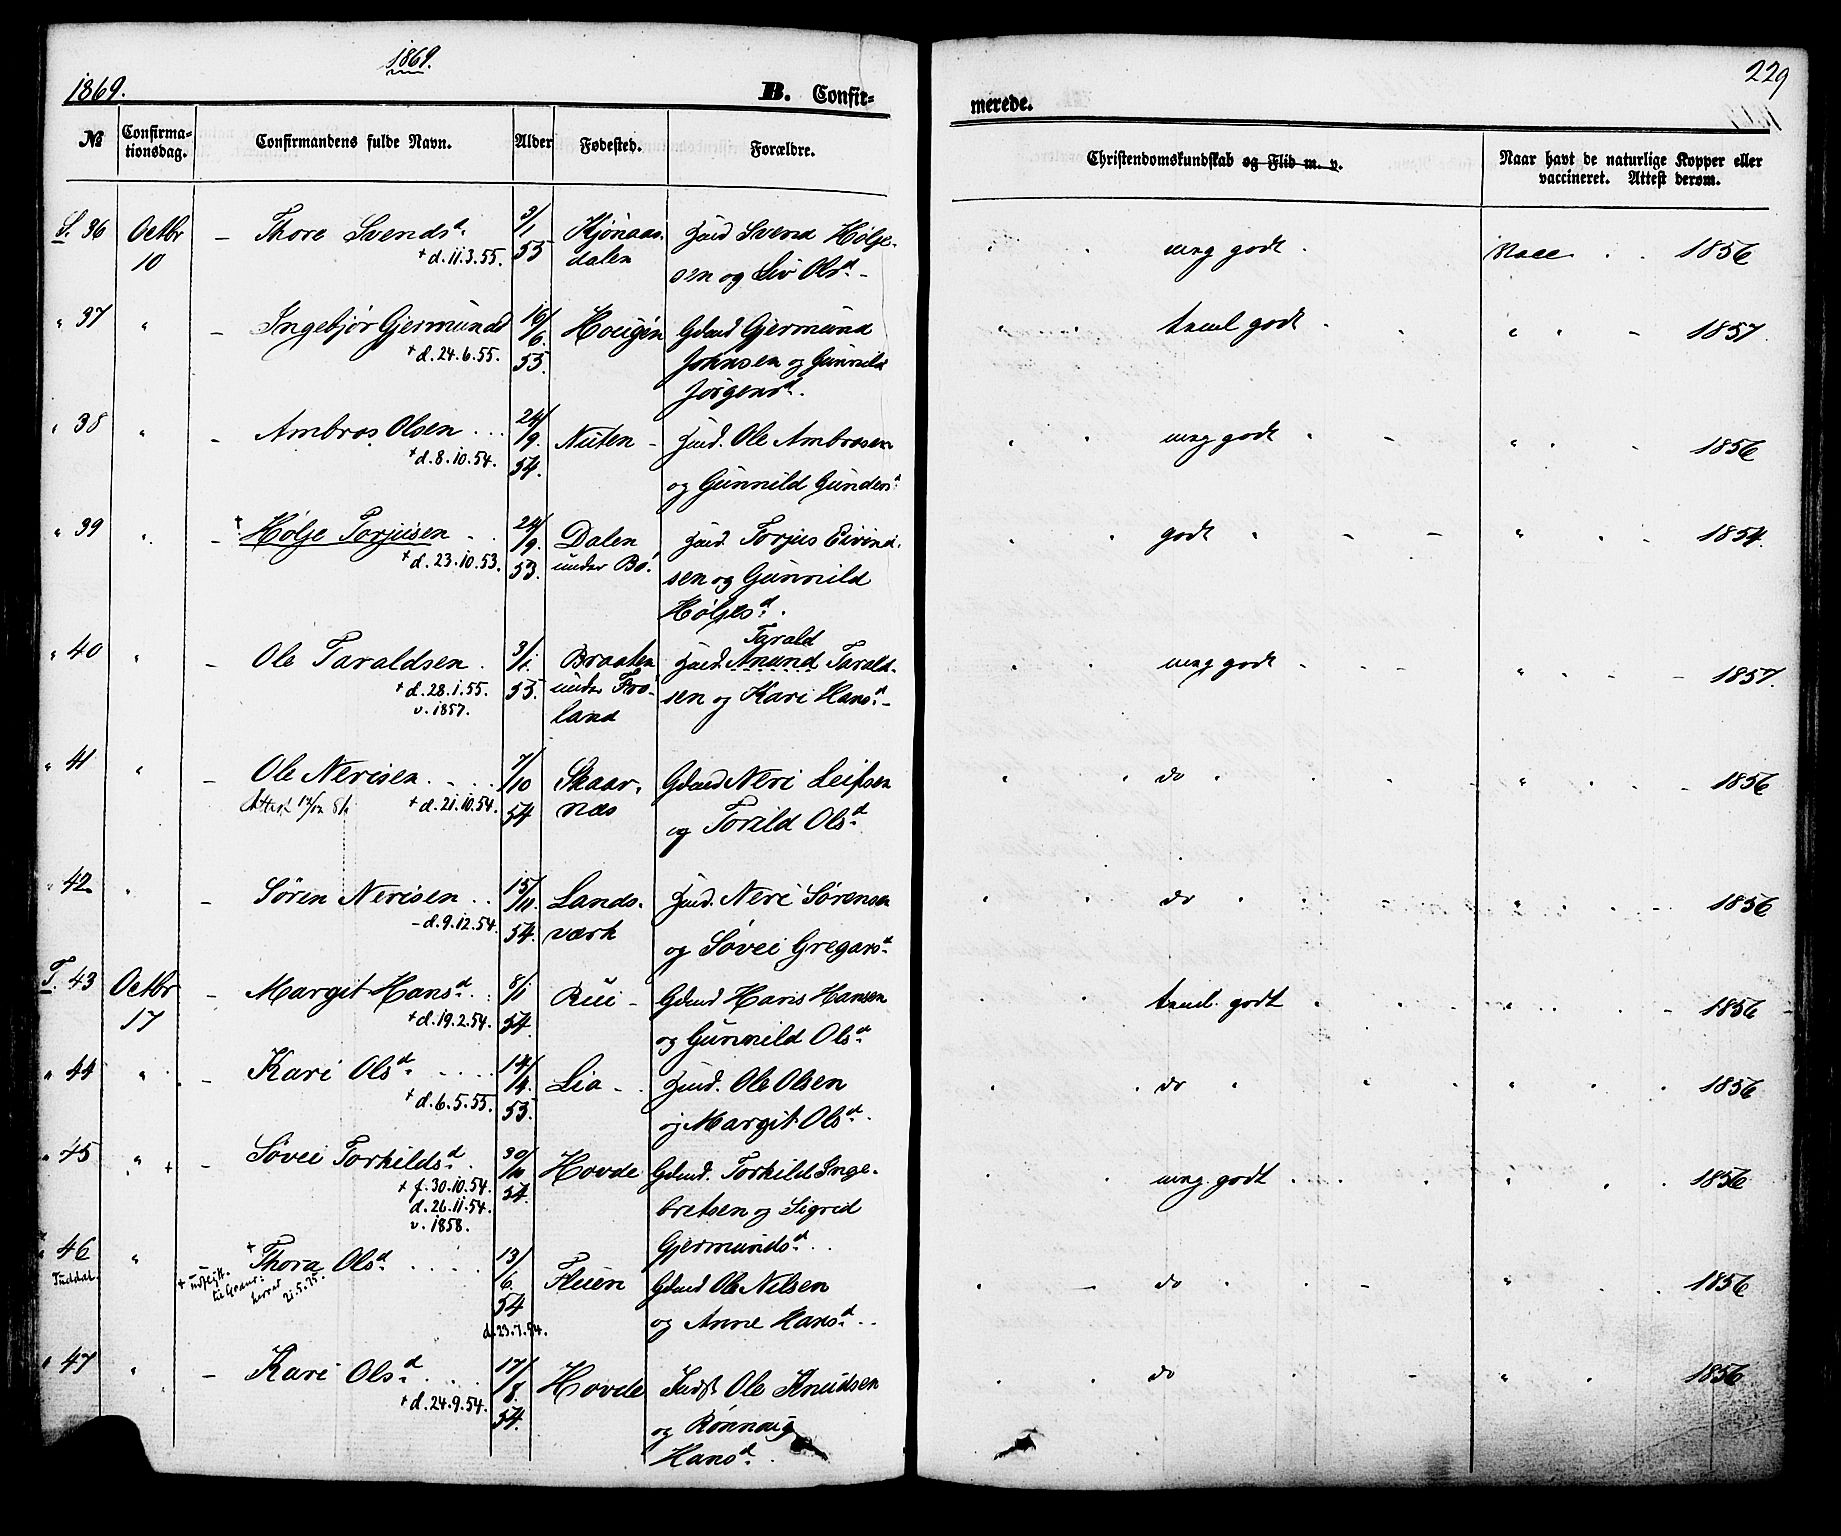 1869.
1869. B. Confir-
merede. 229
№ Confirma-tionsdag. Confirmandens fulde Navn. Alder Fødested. Forældre. Christendomskundskab og Flid m. v. Naar havt de naturlige Kopper eller vaccineret. Attest derom.
S. 36 Octbr 10 – Thore Svendsd. 3/1 55 Kjönaas-dalen Svend Hølje- mg godt Vacc. 1856
+ d. 11.3.55.
sen og Liv Olsd. –
" 37 " – Ingebjør Gjermundsd 16/6 55. Hougen Gdmd Gjermund taml godt " " – 1857.
+ d. 24.6.55.
Johnsen og Gunnild
Jørgensd.
" 38 " – Ambros Olsen 24/9 54. Nuten – Ole Ambrosen mg godt " " 1856
+ d. 8.10.54.
og Gunnild Gundersd.
" 39 " – + Hølje Torjusen 24/9 53. Dalen under Bø. Torjus Eivind- godt " " 1854.
+ d. 23.10.53.
sen og Gunnild
Høljesd.
Tarald
" 40 " – Ole Taraldsen 3/1 55. Braaten under Fro-land Anund Tarald- mg godt " 1857.
+ d. 28.1.55.
v. 1857.
sen og Kari Hansd. –
" 41 " – Ole Nerisen 7/10 54 Skaar-næs Gdmd Neri Leifsen do " 1856
+ d. 21.10.54.
og Torild Olsd.
" 42 " – Søren Nerisen 15/11 54. Lands-værk Neri Sørensen do " 1856
– d. 9.12.54.
og Søvei Gregarsd.
T. 43 Octbr 17 – Margit Hansd. 8/1 54. Rui – Gdmd Hans Hansen taml. godt " 1856
+ d. 19.2.54.
og Gunnild Olsd.
" 44 " – Kari Olsd. 14/4 55. Lia – Ole Olsen do " 1856
+ d. 6.5.55.
og Margit Olsd.
" 45 " + – Søvei Torkildsd. 30/10 54. Hovde Gdmd. Torkild Inge- mg. godt " 1856
+ f. 30.10.54.
d. 26.11.54.
v. 1858.
bretsen og Sigrid
Gjermundsd.
" 46 Tuddal. " + Thora Olsd. 13/6 54 Fluen Gdmd Ole Nilsen do " 1856
+ udflytt. til Grans-herred 21.5.75.
d. 23.7.54.
og Anne Hansd.
" 47 " – Kari Olsd. 17/8 54. Hovde Indst Ole Knudsen do " 1856
+ d. 24.9.54.
og Rønnaug
Hansd.